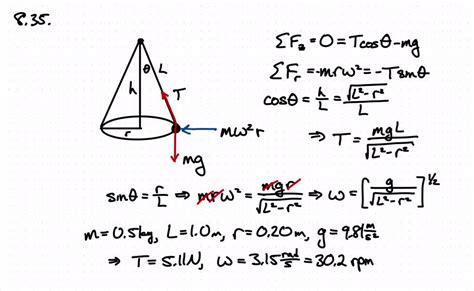 8.35.
ΣF_z = 0 = Tcosθ - mg
ΣF_r = -mrω² = -Tsinθ
cosθ = h/L = √(L²-r²)/L
⇒ T = mgL/√(L²-r²)
θ L
h T
r
mω²r
mg
sinθ = r/L ⇒ mrω² = mgr/√(L²-r²) ⇒ ω = [g/√(L²-r²)]^1/2
m = 0.5kg, L = 1.0m, r = 0.20m, g = 9.81 m/s²
⇒ T = 5.11N, ω = 3.15 rad/s = 30.2 rpm